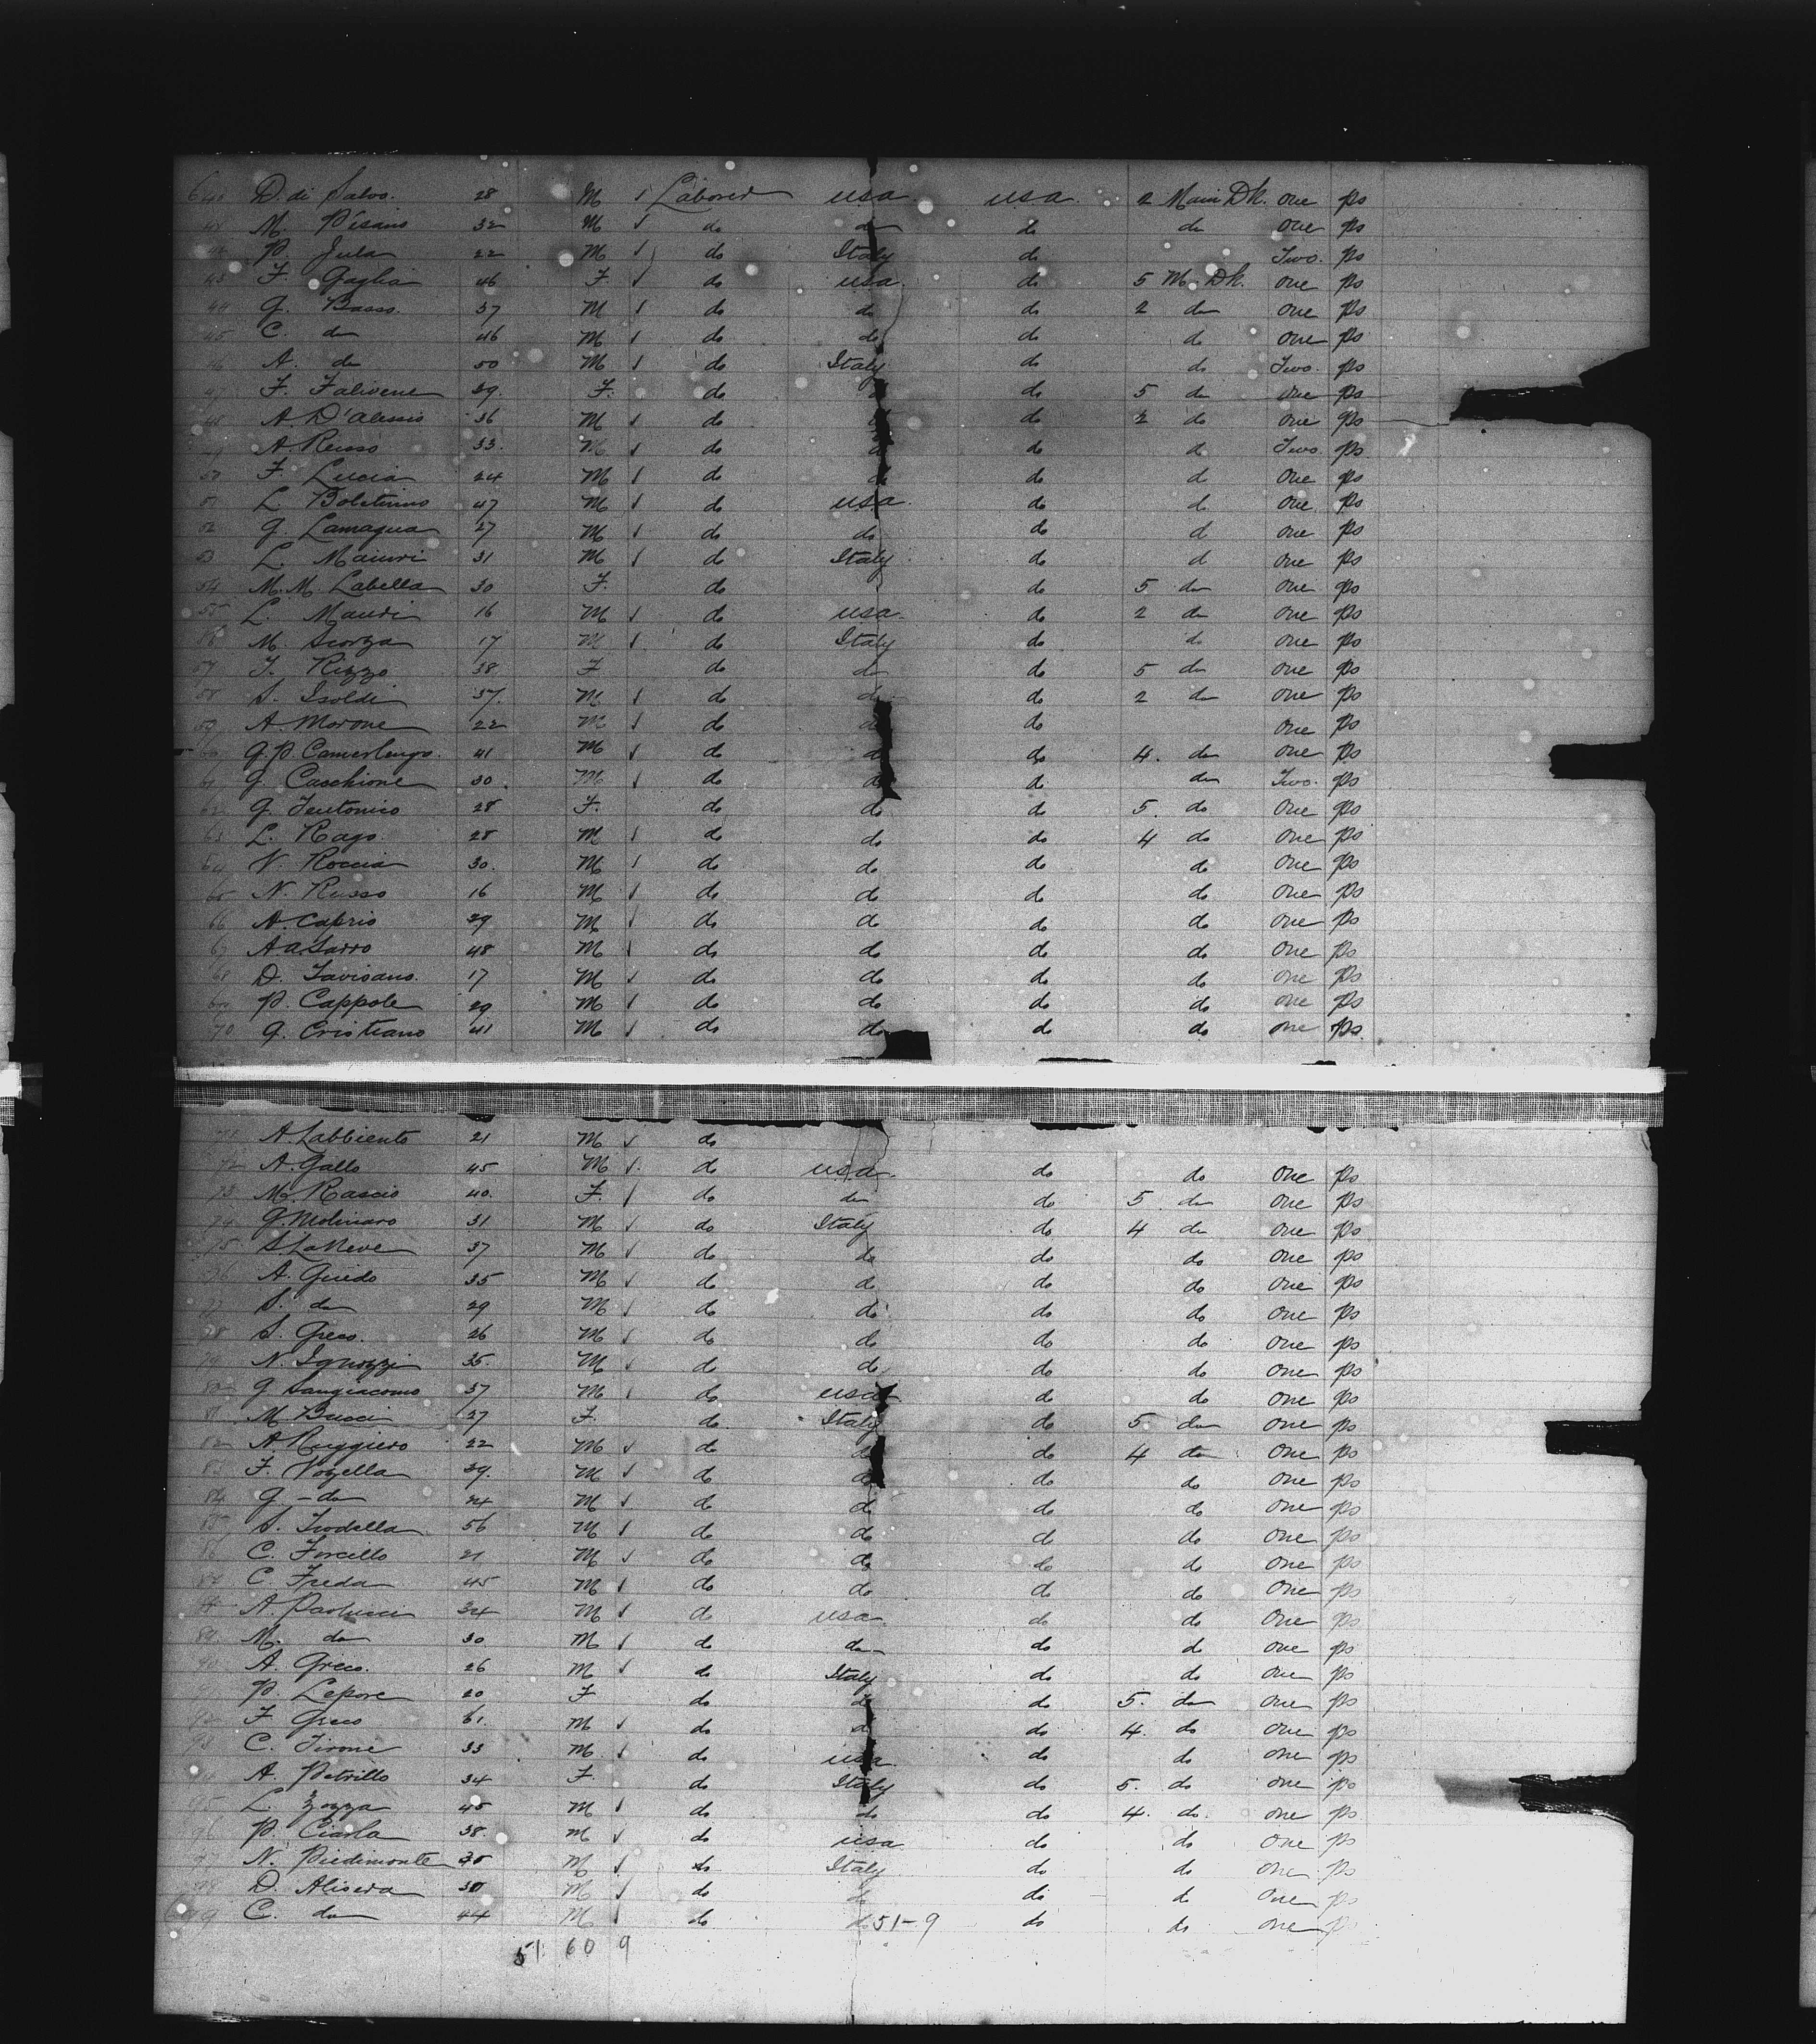 640 D. di Salvo. 28 M Laborer usa usa 2 Main Dk. one ps
41 M. Pisano 32 M do do do do one ps
42 P. Jula 22 M do Italy do Two. ps
43 F. Gaglia 46 F. do usa. do 5 M. Dk. one ps
44 G. Basso. 37 M do do do 2 do one ps
45 C. do 46 M do do do do one ps
46 A. do 50 M do Italy do do Two. ps
47 F. Falivene 29. F. do do 5 do one ps
48 A. D'Alessio 36 M do do 2 do one ps
49 A. Russo 33. M do do do d Two. ps
50 F. Lucia 24 M do do do d one ps
51 L. 47 M do usa. do d one ps
52 G. Lamagua 27 M do do do d one ps
53 L. Maiuri 31 M do Italy do d one ps
54 M. M. Labella 30 F. do do 5 do one ps
55 L. Mauri 16 M do usa. do 2 do one ps
56 M. Scorza 17 M do Italy do do one ps
57 T. Rizzo 38. F do do do 5 do one ps
58 S. Isoldi 37. M do do do 2 do one ps
59 A. Morone 22 M do do do one ps
60 G. P. Camerlengo. 41 M do do do 4. do one ps
61 G. Cacchione 30. M do do do do Two. ps
62 G. Teutonico 28 F. do do do 5. do one ps
63 L. Rago 28 M do do do 4 do one ps
64 V. Roccia 30. M do do do do one ps
65 N. Russo 16 M do do do do one ps
66 A. Caprio 29 M do do do do one ps
67 A. a. Sarro 48 M do do do do one ps
68 D. Tavisano. 17 M do do do do one ps
69 P. Cappole 29 M do do do do one ps
70 G. Cristiano 41 M do do do do one ps.
71 A. Labbiento 21 M do
72 A. Gallo 45 M do usa. do do one ps
73 M. Rascio 40. F. do do do 5 do one ps
74 G. Molinaro 31 M do Italy do 4 do one ps
75 S. LaNeve 37 M do do do do one ps
76 A. Guido 35 M do do do do one ps
77 S. do 29 M do do do do one ps
78 S. Greco. 26 M do do do do one ps
79 N. Ignozzi 35. M do do do do one ps
80 G. Sangiacomo 37 M do usa do do one ps
81 M. Bucci 27 F. do Italy do 5. do one ps
82 A. Ruggiero 22 M do do do 4 do one ps
83 F. Vozella 29. M do do do do one ps
84 G - do 24 M do do do do one ps
85 S. Irodella 56 M do do do do one ps
86 C. Forcillo 21 M do do do do one ps
87 C. Freda 45 M do do do do one ps
88 A. Paolucci 34 M do usa do do one ps
89 M. do 30 M do do do do one ps
90 A. Greco. 26 M do Italy do do one ps
91 P. Lepore 20 F do do do 5. do one ps
92 F. Greco 61. M do do do 4. do one ps
93 C. Tirone 33 M do usa do do one ps
94 A. Petrillo 34 F. do Italy do 5. do one ps
95 L. Zozza 45 M do do do 4. do. one ps
96 P. Ciarla 38. M do usa do do one ps
97 N. Piedimonte M do Italy do do one ps
98 D. Alisera M do do do do one ps
699 C. do 44 M do do 51-9 do do one ps
51 60 9